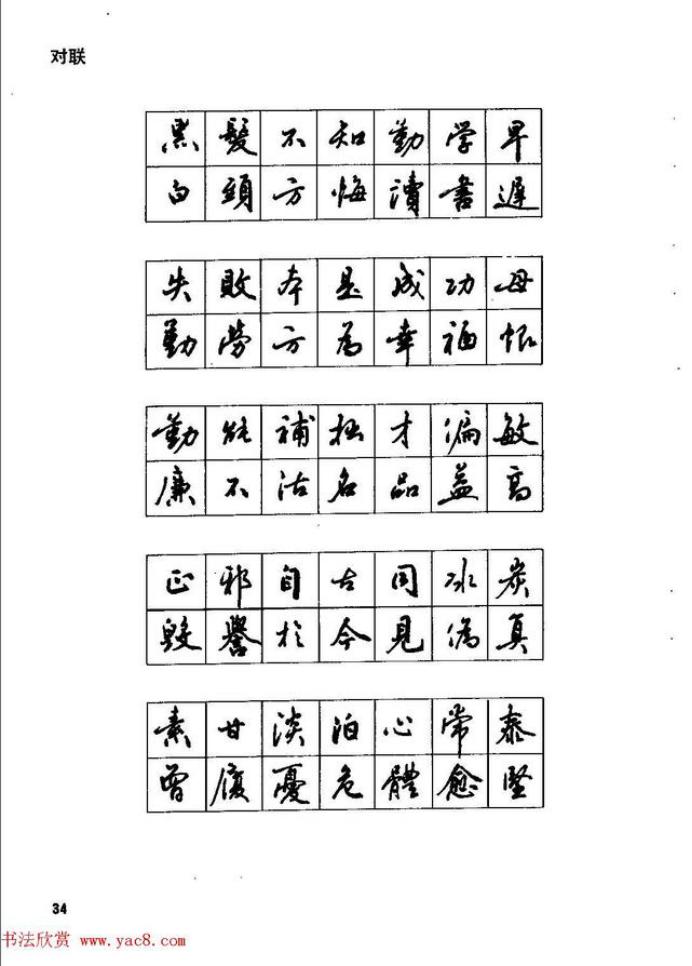 对联
黑髮不知勤学早
白頭方悔讀書遲
失敗本是成功母
勤勞方為幸福根
勤能補拙才偏敏
廉不沽名品益高
正邪自古同冰炭
毀譽於今見偽真
素甘淡泊心常泰
曾履憂危體愈堅
34
书法欣赏 www.yac8.com